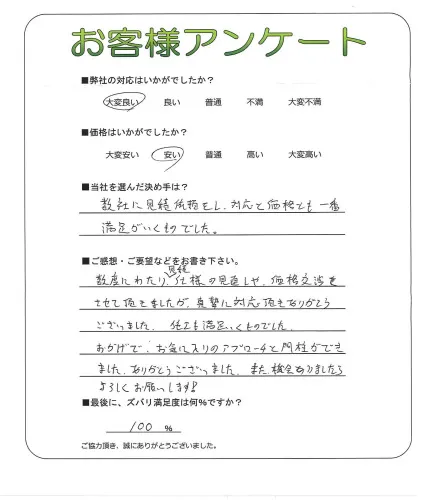 お客様アンケート
■弊社の対応はいかがでしたか？
大変良い 良い 普通 不満 大変不満
■価格はいかがでしたか？
大変安い 安い 普通 高い 大変高い
■当社を選んだ決め手は？
数社に見積依頼をし、対応と価格とも一番
満足がいくものでした。
■ご感想・ご要望などをお書き下さい。
見積
数度にわたり、仕様の見直しや、価格交渉を
させて頂きましたが、真摯に対応頂きありがとう
ございました。 も満足いくものでした。
おかげで、お気に入りのアプローチと門柱ができ
ました。ありがとうございました。また機会ありましたら
よろしくお願いします!
■最後に、ズバリ満足度は何%ですか？
100 %
ご協力頂き、誠にありがとうございました。